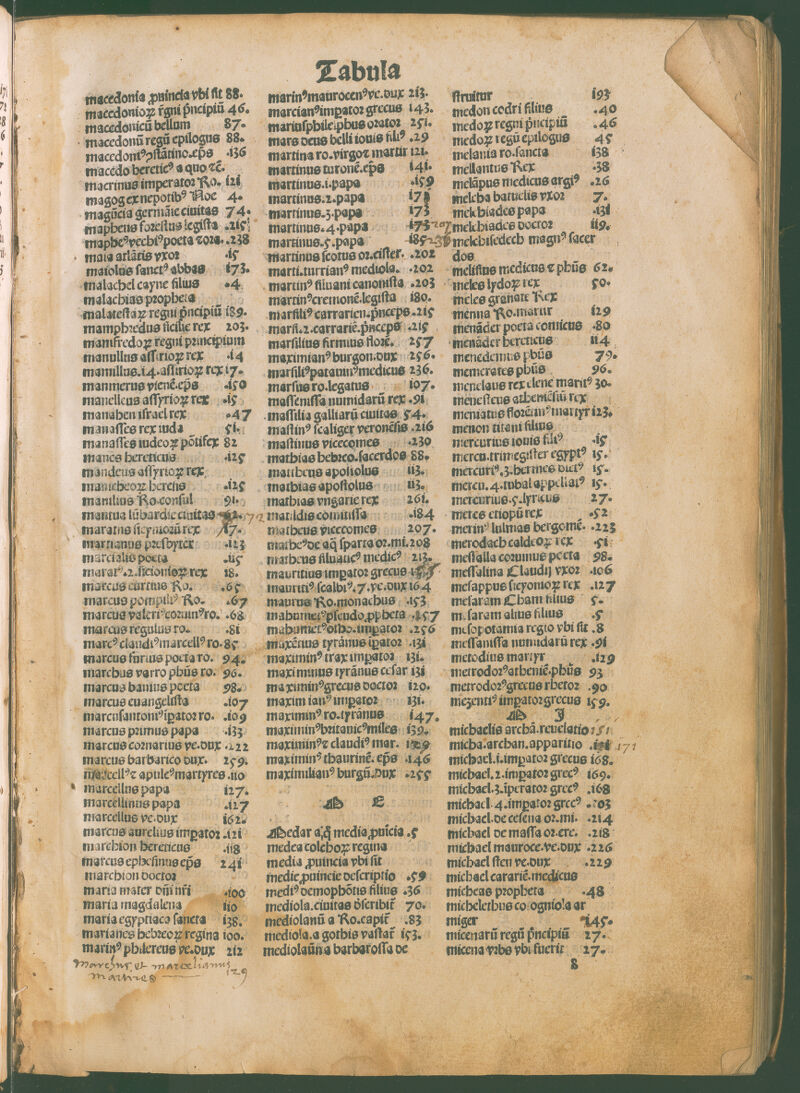 Tabula
macedonia ꝓuincia vbi sit 88.
macedonioꝝ r̃gni p̃ncipiũ 46.
macedonicũ bellum 87.
macedonũ regũ epilogus 88.
macedoniꝰ ꝯstãtino.ep̃s .136
macedo hereticꝰ a quo ⁊c̃.
macrinus imperator Ro. 121
magog ex nepotibꝰ Noe 4.
magũcia germãie ciuitas 74.
mapheus forestus legista .215
mapheꝰ vechiꝰ poeta ⁊ ora. .238
maia atlãtis vxor .15
maiolus sanctꝰ abbas 173.
malachel cayne filius .4
malachias propheta
malatestaꝝ regni p̃ncipiũ 189.
mamphredus sicilie rex 203.
manfredoꝝ regni principium
manullus assirioꝝ rex .14
manullus.14.assirioꝝ rex 17.
manmerus vienẽ.ep̃s .150
manelleus assyrioꝝ rex .15
manahen israel rex .47
manasses rex iuda 51.
manasses iudeoꝝ põtifex 82
manes hereticus .125
mandeus assyrioꝝ rex
manicheoꝝ heresis .125
manilius Ro.consul 91.
mantua lũbardie ciuitas
maratus sicynioꝝ rex 17.
martianus presbyter .123
marcialis poeta .115
marar.2.sicionioꝝ rex 18.
marcus curtius Ro. .65
marcus pompiliꝰ Ro. .67
marcus valeriꝰ coruinꝰ ro. .68
marcus regulus ro. .81
marcꝰ claudiꝰ marcellꝰ ro. 85
marcus furius poeta ro. 94.
marchus varro ph̃us ro. 96.
marcus banius poeta 98.
marcus euangelista .107
marcusantoniꝰ ĩpator ro. .109
marcus primus papa .133
marcus cornarius ve.dux .222
marcus barbarico dux. 259.
marcellꝰ ⁊ apuleꝰ martyres .110
marcellus papa 127.
marcellinus papa .127
marcellus ve.dux 162.
marcus aurelius imꝑator .121
marchion hereticus .118
marcus ephesinus ep̃s 241
marchion doctor
maria mater dñi nr̃i .100
maria magdalena 110
maria egyptiaca sancta 138.
marianes hebreoꝝ regina 100.
marinꝰ philereus ve.dux 212
129
marinꝰ maurocenꝰ ve.dux 213.
marcianꝰ imꝑator grecus 143.
marius phile.phus orator 251.
mars deus belli iouis filiꝰ .29
martina ro.virgo ⁊ martir 121.
martinus turonẽ.ep̃s 141.
martinus.1.papa .159
martinus.2.papa 171
martinus.3.papa 173
martinus.4.papa 173 207
martinus.5.papa
martinus scotus or.cister. .202
marti.turrianꝰ mediola. .202
martinꝰ siluani canonista .203
martinꝰ cremonẽ.legista 180.
marsiliꝰ carrarien.p̃nceps .215
marsi.2.carrariẽ.p̃nceps .215
marsilius firmius florẽ. 257
maximianꝰ burgon.dux 256.
marsiliꝰ patauinꝰ medicus 236.
marsus ro.legatus 107.
massenissa numidarũ rex .91
massilia galliarũ ciuitas 54.
mastinꝰ scaliger veronẽsis .216
mastinus vicecomes .230
mathias hebreo.sacerdos 88.
mattheus apostolus 113.
mathias apostolus 113.
mathias vngarie rex 261.
matildis comitissa .184
matheus viccecomes 207.
matheꝰ de aq̃ sparta or.mi. 208
matheus siluaticꝰ medicꝰ 213.
mauritius imꝑator grecus 155
mauritiꝰ scalbiꝰ.7.ve.dux 164
maurus Ro.monachus .153
mahumetꝰ pseudo.ꝓpheta .157
mahumetꝰ otho.imꝑator .256
maxẽtius tyrãnus ĩꝑator .131
maximinꝰ trax imꝑator 131.
maximinus tyrãnus cesar 131
maximinꝰ grecus doctor 120.
maximianꝰ imꝑator 131.
maximinꝰ ro.tyrãnus 147.
maximinꝰ britanicꝰ miles 139.
maximinꝰ ⁊ claudiꝰ mar. 129
maximinꝰ thaurinẽ. ep̃s .146
maximilianꝰ burgũ.dux .255
M E
Medar a q̃ media ꝓuĩcia .5
medea colchoꝝ regina
media ꝓuincia vbi sit
medie ꝓuincie descriptio .59
mediꝰ demophõtis filius .36
mediola.ciuitas d̃scribit̃ 70.
mediolanũ a Ro.capit̃ .83
mediola.a gothis vastat̃ 153.
mediolanũ a barbarossa de
struitur 193
medon codri filius .40
medoꝝ regni p̃ncipiũ .46
medoꝝ regũ epilogus 45
melania ro.sancta 138
mellantus Rex .38
melãpus medicus argiꝰ .26
melcha baruelis vxor 7.
melchiades papa .131
melchiades doctor 119.
melchisedech magnꝰ sacer
dos
melissus medicus ⁊ ph̃us 62.
meles lydoꝝ rex 50.
meles granate Rex
menna Ro.martir 129
menãder poeta comicus .80
menãder hereticus 114
menedemus ph̃us 79.
menecrates ph̃us 96.
menelaus rex elene maritꝰ 30.
menesteus atheniẽsiũ rex
meniatus florẽtinꝰ martyr 123.
menon titani filius
mercurius iouis filiꝰ .15
mercu.trimegister egyptꝰ 15.
mercuriꝰ.3.hermes dictꝰ 15.
mercu.4.tubal appellatꝰ 15.
mercurius.5.lyricus 27.
meres etiopũ rex .52
merinꝰ lulmus bergomẽ. .223
merodach caldeoꝝ rex .51
messalla coruinus poeta 98.
messalina Claudij vxor .106
mesappus sicyonioꝝ rex .127
mesaram Cham filius 5.
m.saram alius filius .5
mesopotamia regio vbi sit .8
messanissa numidarũ rex .91
metodius martyr .129
metrodorꝰ atheniẽ.ph̃us 93
metrodorꝰ grecus rhetor .90
mezentiꝰ imꝑator grecus 159.
M I
michaelis archã.reuelatio 151
micha.archan.apparitio 171
michael.1.imꝑator grecus 168.
michael.2.imꝑator grecꝰ 169.
michael.3.ĩperator grecꝰ .168
michael.4.imꝑator grecꝰ .203
michael.de cesena or.mi. .214
michael de massa or.ere. .218
michael mauroce.ve.dux .226
michael sten ve.dux .229
michael carariẽ.medicus
micheas propheta .48
michelethus co ogniola ar
miger 145.
micenarũ regũ p̃ncipiũ 27.
micena vrbs vbi fuerit 27.